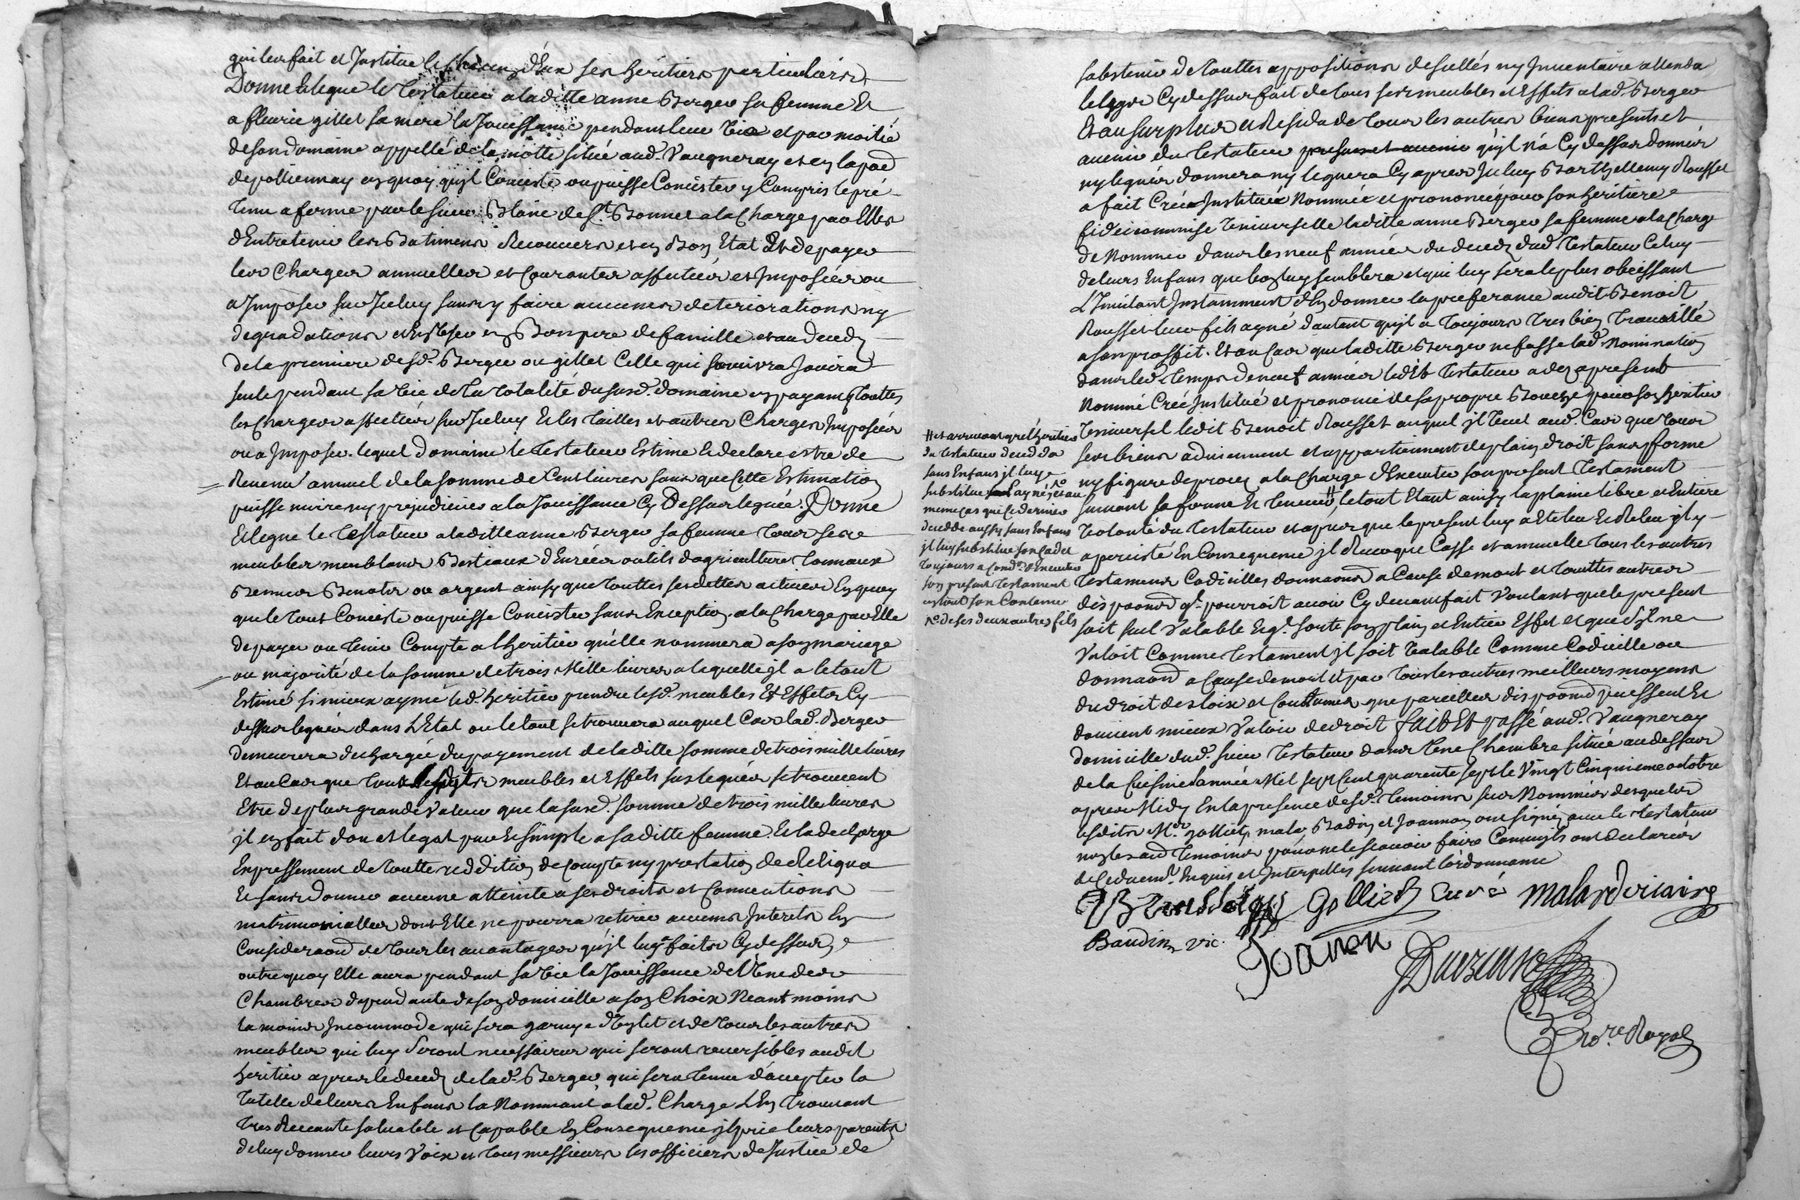 qui leur fait et Institue le chacun d'Eux ses héritiers particuliers
Donne et legue le Testateur a laditte anne Berger sa femme Et
a fleurie gillet sa mere la Jouissance pendant leur vie et par moitié
de son domaine appellé de la motte située aud. Vaugneray et en la par.
de pollionnay en quoy qu'il Conciste ou puisse Concister y Compris le pré
tenu a ferme par le sieur Blanc de St. Bonnet a la Charge par Elles
d'Entretenir les Batimens Recouvers et en Bon Etat Et de payer
les Charges annuelles et Courantes affectées et Imposées ou
a Imposer sur Iceluy sans y faire aucunes deteriorations ny
degradations et En user en Bon pere de famille et au deced
de la premiere desd. Berger ou gillet Celle qui survivra Jouira
seule pendant sa vie de la totalité du susd. domaine en payant touttes
les Charges affectées sur Iceluy Et les Tailles et autres Charges Imposées
ou a Imposer. lequel domaine le Testateur Estime et declare estre de
Revenu annuel de la somme de Cent livres sans que Cette Estimation
puisse nuire ny prejudicier a la Jouissance Cy Dessus leguée. Donne
Et legue le Testateur a laditte anne Berger sa femme Tous ses
meubles meublans Bestiaux d'Enrées outils d'agriculture Tonnaux
Bennes Benates or argent ainsy que touttes ses dettes actives En quoy
que le tout Conciste ou puisse Concister sans Exception a la Charge par Elle
de payer ou tenir Compte a lheritier qu'elle nommera a son mariage
ou majorité de la somme de trois Mille livres a laquelle il a le tout
Estimé si mieux aymé led. heritier prendre lesd. meubles Et Effets Cy
dessus legués dans l'Etat ou le tout se trouvera auquel Cas lad. Berger
demeurera dechargée du payement de laditte somme de trois mille livres
Et au Cas que Tous lesdits meubles et Effets sus legués se trouvent
Etre de plus grande Valeur que la susd. somme de trois mille livres
il en fait don et legat pur Et simple a saditte femme Et la decharge
Expressement de toutte reddition de Compte ny prestation de Reliqua
Et sans donner aucune atteinte a ses droits et Conventions
matrimonialles dont Elle ne pourra retirer aucuns Interets En
Consideraon de tous les avantages qu'il luy faits Cy dessus
outre quoy Elle aura pendant sa vie la Jouissance de L'Une des
Chambres dependante de son domicille a son Choix Neantmoins
la moins Incommode qui sera garnye d'un lit et de tous les autres
meubles qui luy seront necessaires qui seront reversibles audit
heritier apres le deced de lad. Berger qui sera tenue d'accepter la
Tutelle de leurs Enfans la Nommant a lad. Charge L'En Trouvant
tres Receante solvable et Capable En Consequence il prie leurs parents
de luy donner leurs Voix et tous messieurs les officiers de Justice de
sabstenir de touttes appositions de scellés ny Inventaire attendu
le legs Cy dessus fait de tous ses meubles et Effets a lad. Berger
Et au surplus et Residu de tous les autres biens presents et
avenir du Testateur presens et avenir qu'il n'a Cy dessus donnés
ny legués donnera ny leguera Cy apres Iceluy Barthellemy Rousset
a fait Créé Institué Nommé et prononcé pour son heritiere
fideicommise Universelle laditte anne Berger sa femme a la Charge
de Nommer dans les neuf années du deced dud. Testateur Celuy
de leurs Enfans que bon luy semblera et qui luy sera le plus obeissant
L'Invitant Instamment d'En donner la preferance audit Benoit
Rousset leur fils ayné d'autant qu'il a toujours tres bien travaillé
a son proffit. Et au Cas que laditte Berger ne fasse lad. Nomination
dans led. temps de neuf années ledit Testateur a des a present
Nommé Créé Institué et prononcé de sa propre Bouche pour son heritier
Universel ledit Benoit Rousset auquel il veut aud. Cas que tous
ses biens adviennent et appartiennent de plain droit sans forme
ny figure de proces a la charge d'Executer son present Testament
suivant sa forme Et Teneur # le tout Etant ainsy la plaine libre et Entiere
Volonté du Testateur et apres que le present luy a Eté leu Et Releu il y
a percisté En Consequence il Revoque Casse et annulle tous les autres
Testamens Codicilles donnaons a Cause de mort et touttes autres
dispoons qu'il pourroit avoir Cy devant fait Voulant que le present
soit seul Valable Et qu'il sorte son plain et Entier Effet et que s'il ne
Valoit Comme Testament il soit Valable Comme Codicille ou
donnaon a Cause de mort et par tous les autres meilleurs moyens
du droit des loix et Coutumes que pareilles dispoons puissent Et
doivent mieux Valoir de droit fait Et passé aud. Vaugneray
domicille dud. sieur Testateur dans Une Chambre située au dessus
de la Cuisine l'année Mil sept Cent quarente sept le Vingt Cinquieme octobre
apres Midy En la presence desd. temoins sus Nommés desquels
lesdits Mrs. golliet, mala, Badin et Joannon ont signé avec le testateur
non les aud. temoins pour ne le scavoir faire Comme ils ont declarés
de Ce duement Enquis et Interpellés suivant l'ordonnance
# et arrivant que l'heritier
du Testateur decedda
sans Enfans il luy
substitue l'ayné et au
meme Cas que Ce dernier
decedde aussy sans Enfans
il luy substitue son Cadet
toujours a Condon d'Executer
son present Testament
en tout son Contenu
de ses deux autres fils
B Rousset Golliet Curé Mala Vicaire
Baudin vic. Joanon
Duvernay
nore. Royal